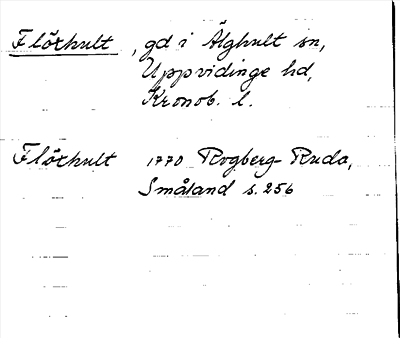 Flöxhult, gd i Älghult sn,
Uppvidinge hd,
Kronob. l.
Flöxhult 1770 Rogberg-Ruda,
Småland s. 256